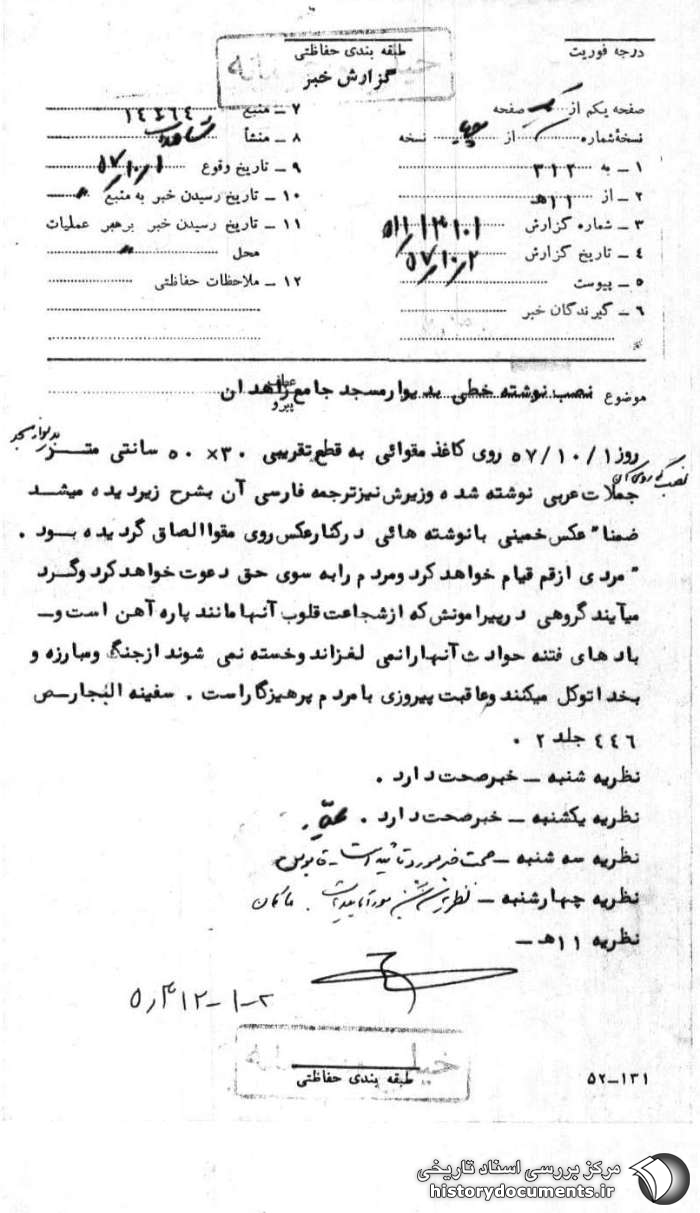 درجه فوریت
طبقه بندی حفاظتی
گزارش خبر
صفحه یکم از یک صفحه
نسخهٔ شماره از نسخه
۱ – به ۳۱۲
۲ – از ۱۱هـ
۳ – شماره گزارش
۴ – تاریخ گزارش ۵۷/۱۰/۲
۵ – پیوست
۶ – گیرندگان خبر
۷ – منبع ۱۴۶۶۴
۸ – منشأ
۹ – تاریخ وقوع ۵۷/۱۰/۱
۱۰ – تاریخ رسیدن خبر به منبع "
۱۱ – تاریخ رسیدن خبر برهبر عملیات
محل "
۱۲ – ملاحظات حفاظتی
موضوع نصب نوشته خطی بدیوار مسجد جامع زاهدان
پیرو
روز ۵۷/۱۰/۱ روی کاغذ مقوائی به قطع تقریبی ۳۰×۵۰ سانتی متر بدیوار مسجد
نصب که روی آن
جملات عربی نوشته شده وزیرش نیز ترجمه فارسی آن بشرح زیر دیده میشد
ضمنا" عکس خمینی بانوشته هائی درکنار عکس روی مقوا الصاق گردیده بود .
"مردی ازقم قیام خواهد کرد ومردم را به سوی حق دعوت خواهد کرد وگرد
میآیند گروهی درپیرامونش که ازشجاعت قلوب آنها مانند پاره آهن است و–
بادهای فتنه حوادث آنها رانمی لغزاند وخسته نمی شوند ازجنگ ومبارزه و
بخدا توکل میکنند وعاقبت پیروزی بامردم پرهیزگار است . سفینه البحار ص
۴۴۶ جلد ۲ .
نظریه شنبه – خبرصحت دارد .
نظریه یکشنبه – خبرصحت دارد .
نظریه سه شنبه – صحت خبر مورد تأیید است –
نظریه چهارشنبه – نظریه سه شنبه مورد تایید است .
نظریه ۱۱هـ –
طبقه بندی حفاظتی
۵۲–۱۳۱
مرکز بررسی اسناد تاریخی
historydocuments.ir